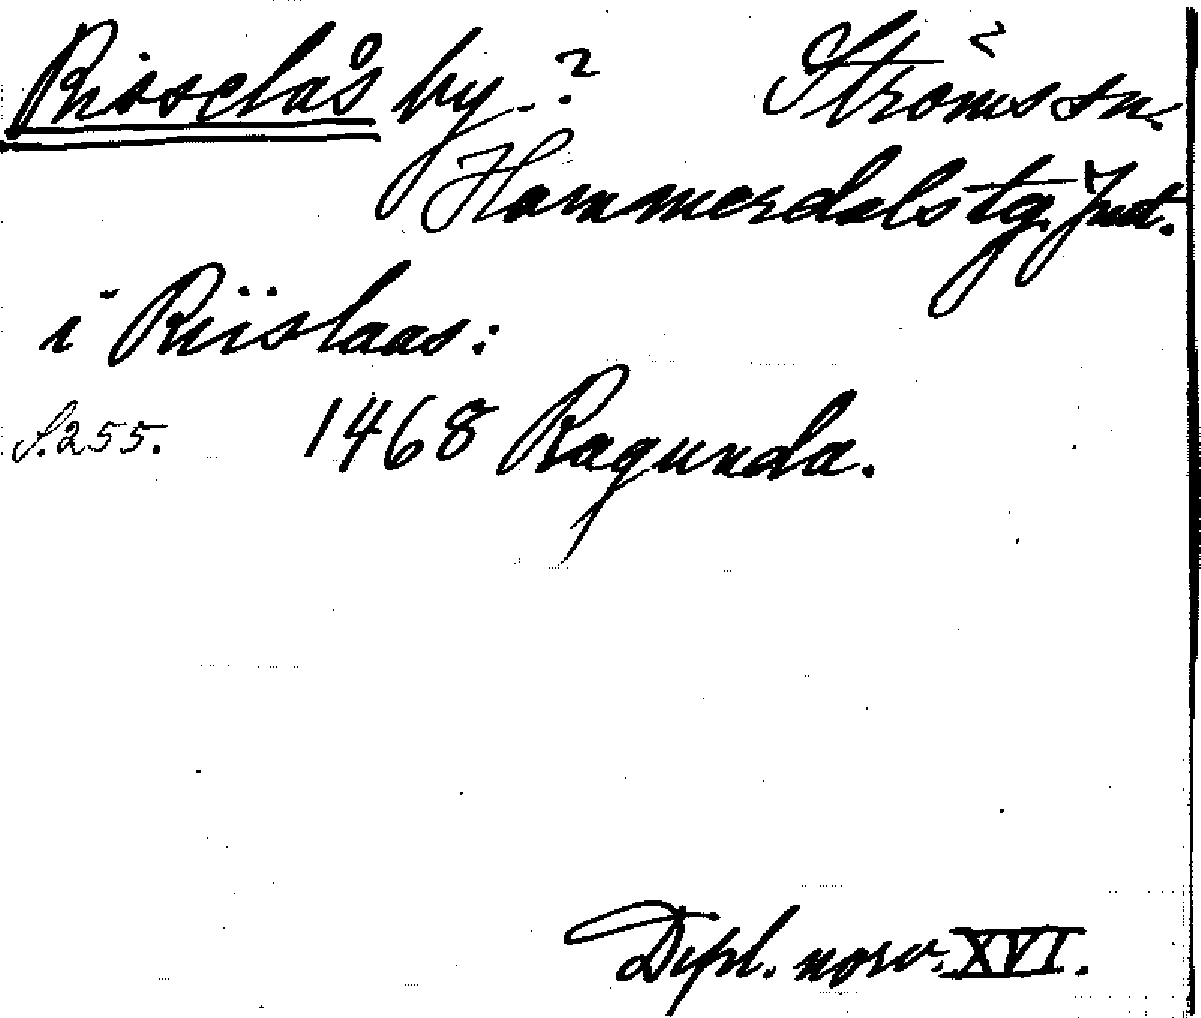 Risselås by.? Ströms sn.
Hammerdals tg. Jmtl.
i Riislaas:
S. 255. 1468 Ragunda.
Dipl. norv. XVI.